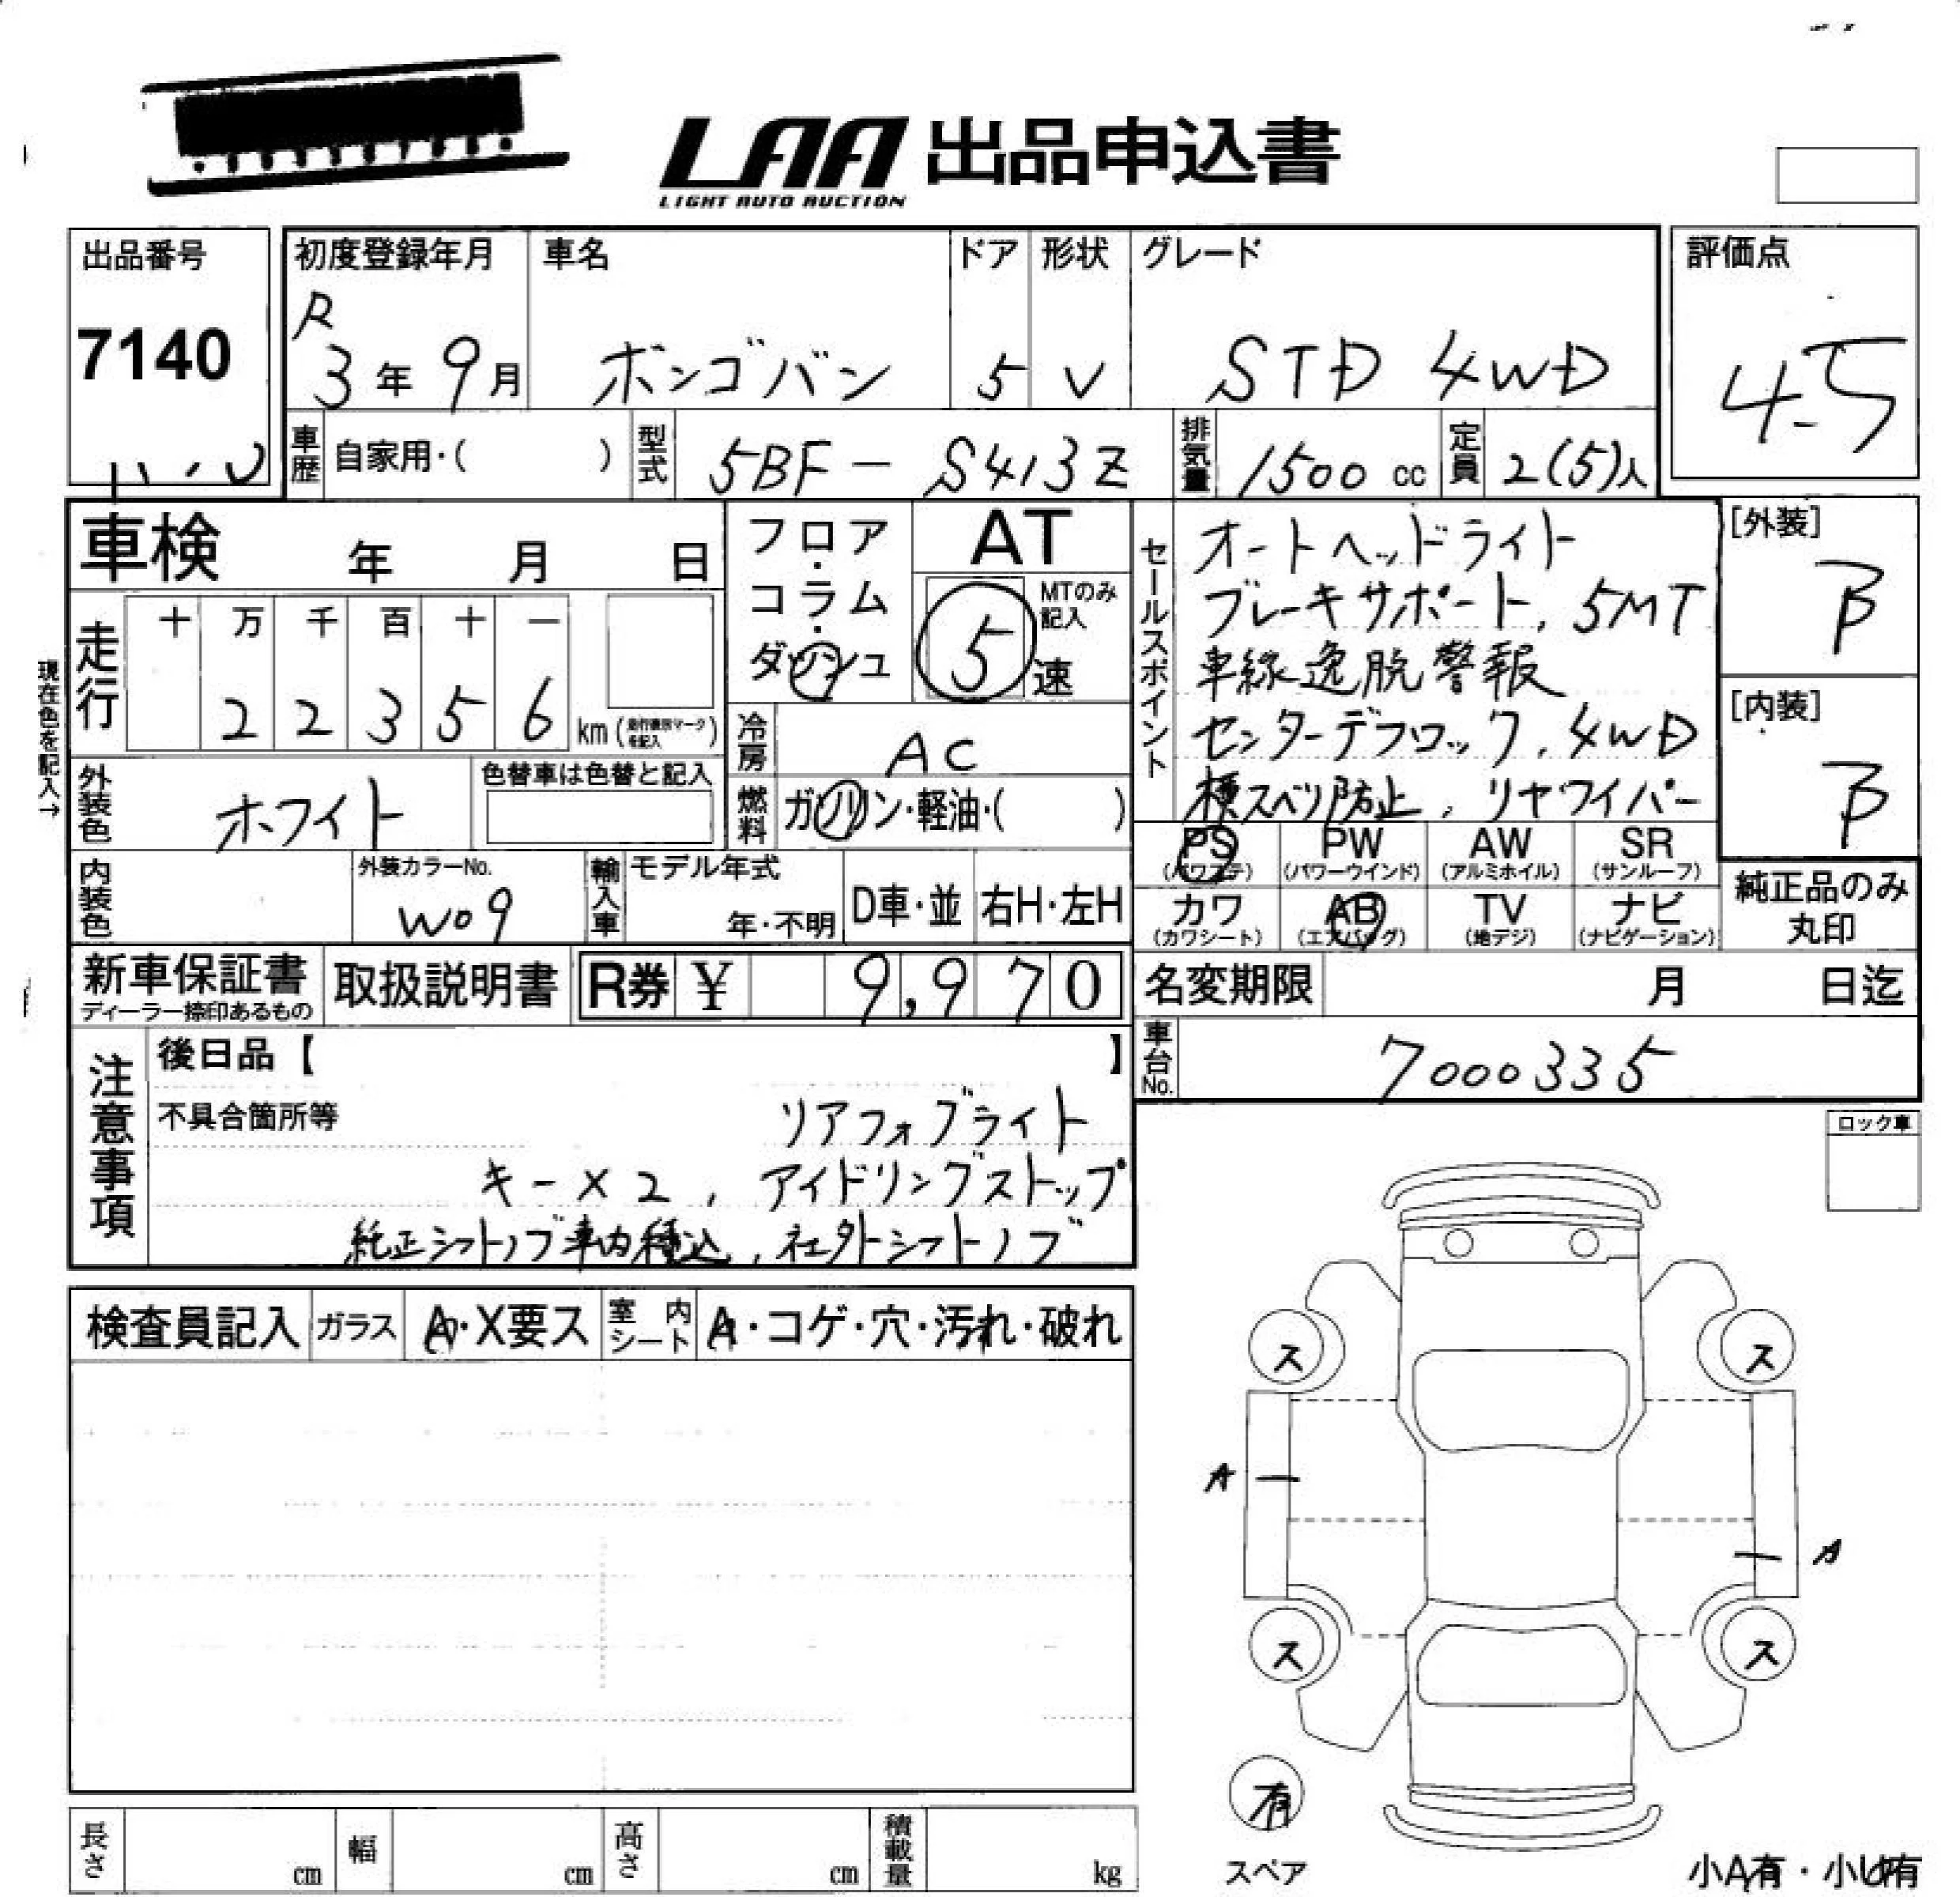 LAA 出品申込書
LIGHT AUTO AUCTION
出品番号
7140
初度登録年月
R
3年 9月
車名
ボンゴバン
ドア
5
形状
V
グレード
STD 4WD
評価点
4.5
車歴 自家用・( )
型式 5BF - S413Z
排気量 1500 cc
定員 2(5)人
車検 年 月 日
フロア・コラム・ダッシュ
AT
MTのみ記入
5 速
現在色を記入→
走行 十 万 千 百 十 一
2 2 3 5 6 km (走行表示マークを記入)
冷房 AC
燃料 ガソリン・軽油・( )
外装色 ホワイト
色替車は色替と記入
内装色
外装カラーNo.
W09
輸入車 モデル年式
年・不明
D車・並
右H・左H
セールスポイント
オートヘッドライト
ブレーキサポート, 5MT
車線逸脱警報
センターデフロック, 4WD
横スベリ防止, リヤワイパー
[外装]
B
[内装]
B
PS (パワステ)
PW (パワーウインド)
AW (アルミホイル)
SR (サンルーフ)
カワ (カワシート)
AB (エアバッグ)
TV (地デジ)
ナビ (ナビゲーション)
純正品のみ丸印
新車保証書
ディーラー捺印あるもの
取扱説明書
R券 ¥ 9,970
名変期限 月 日迄
車台No. 7000335
注意事項
後日品【 】
不具合箇所等
リアフォグライト
キー×2, アイドリングストップ
純正シフトノブ車内積込, 社外シフトノブ
ロック車
検査員記入
ガラス A・X要ス
室内シート A・コゲ・穴・汚れ・破れ
ス ス
A
A
ス ス
有
スペア
小A有・小U有
長さ cm
幅 cm
高さ cm
積載量 kg